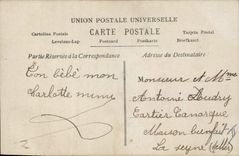 UNION POSTALE UNIVERSELLE
CARTE POSTALE
Cartolina Postale
Levelezo-Lap
Postcard
Postkarte
Tarjeta Postal
Briefkaart
Partie Réservée à la Correspondance
Adresse du Destinataire
Ton bébé mon
Carlotte mimi
Monsieur & Mme
Antoine
Cartier
Maison
La Seyne